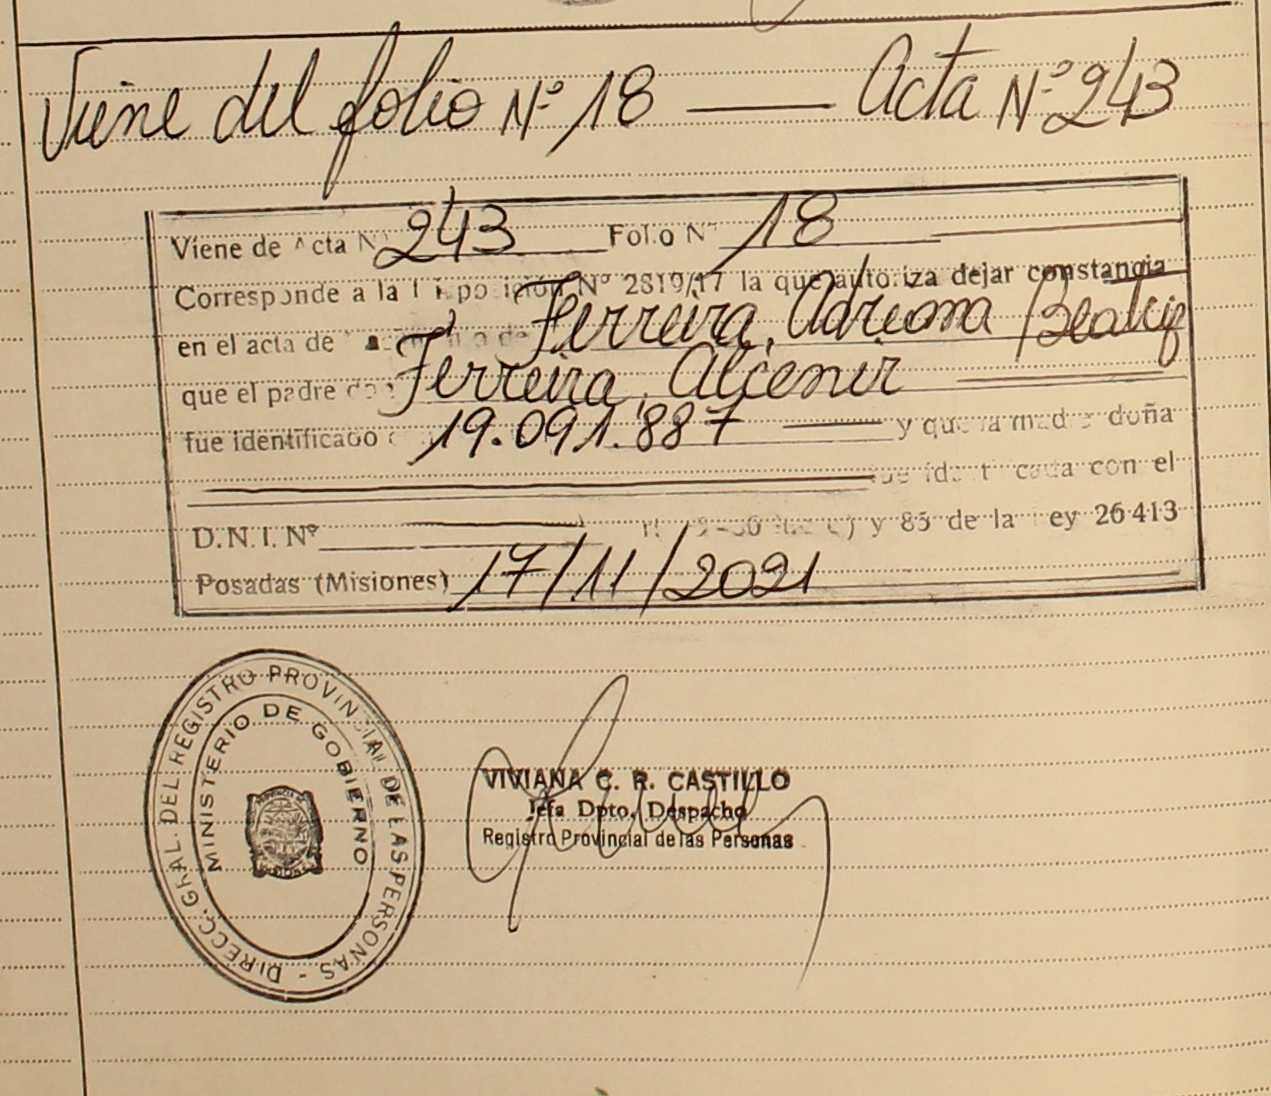 Viene del folio Nº 18 — Acta Nº 243
Viene de Acta Nº 243 Folio Nº 18
Corresponde a la Disposición Nº 2819/17 la que autoriza dejar constancia
en el acta de Ferreira, Adriana Beatriz
que el padre don Ferreira, Alcenir
fue identificado 19.091.887 y que la madre doña
fue identificada con el
D.N.I. Nº y 85 de la Ley 26413
Posadas (Misiones) 17/11/2021
DIRECC. GRAL. DEL REGISTRO PROVINCIAL DE LAS PERSONAS -
MINISTERIO DE GOBIERNO
VIVIANA C. R. CASTILLO
Jefa Dpto. Despacho
Registro Provincial de las Personas